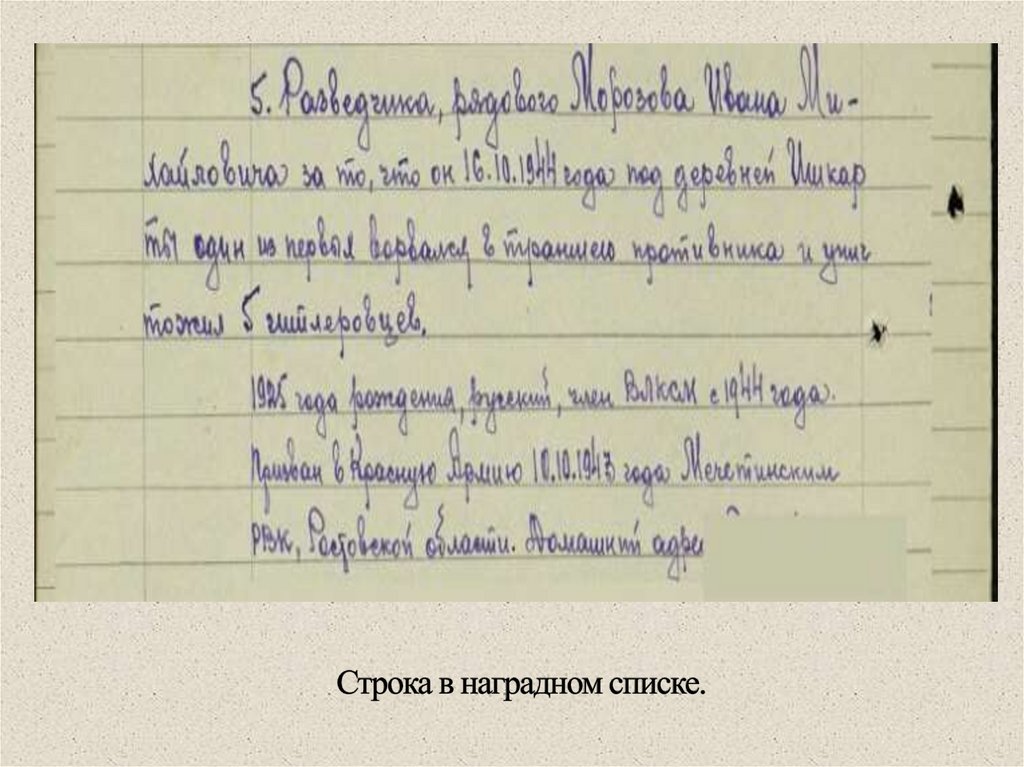 5. Разведчика, рядового Морозова Ивана Ми-
хайловича за то, что он 16.10.1944 года под деревней Ишкар
ты один из первых ворвался в траншею противника и унич
тожил 5 гитлеровцев.
1925 года рождения, русский, член ВЛКСМ с 1944 года.
Призван в Красную Армию 10.10.1943 года Мечетинским
РВК, Ростовской области. Домашний адре
Строка в наградном списке.